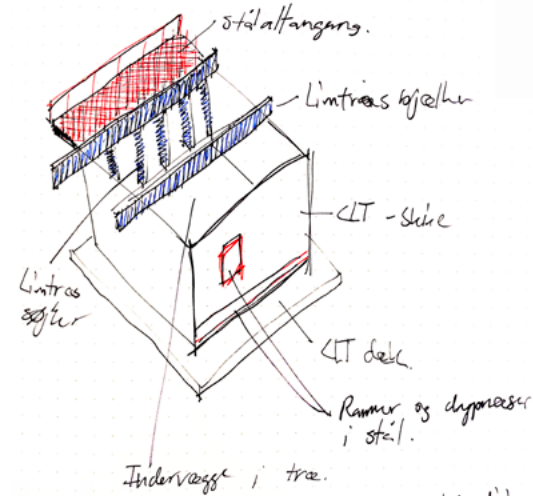 stålaltangang.
Limtræs bjælker
CLT - skive
Limtræs
søjler
CLT dæk.
Rammer og drypnæser
i stål.
Indervægge i træ.